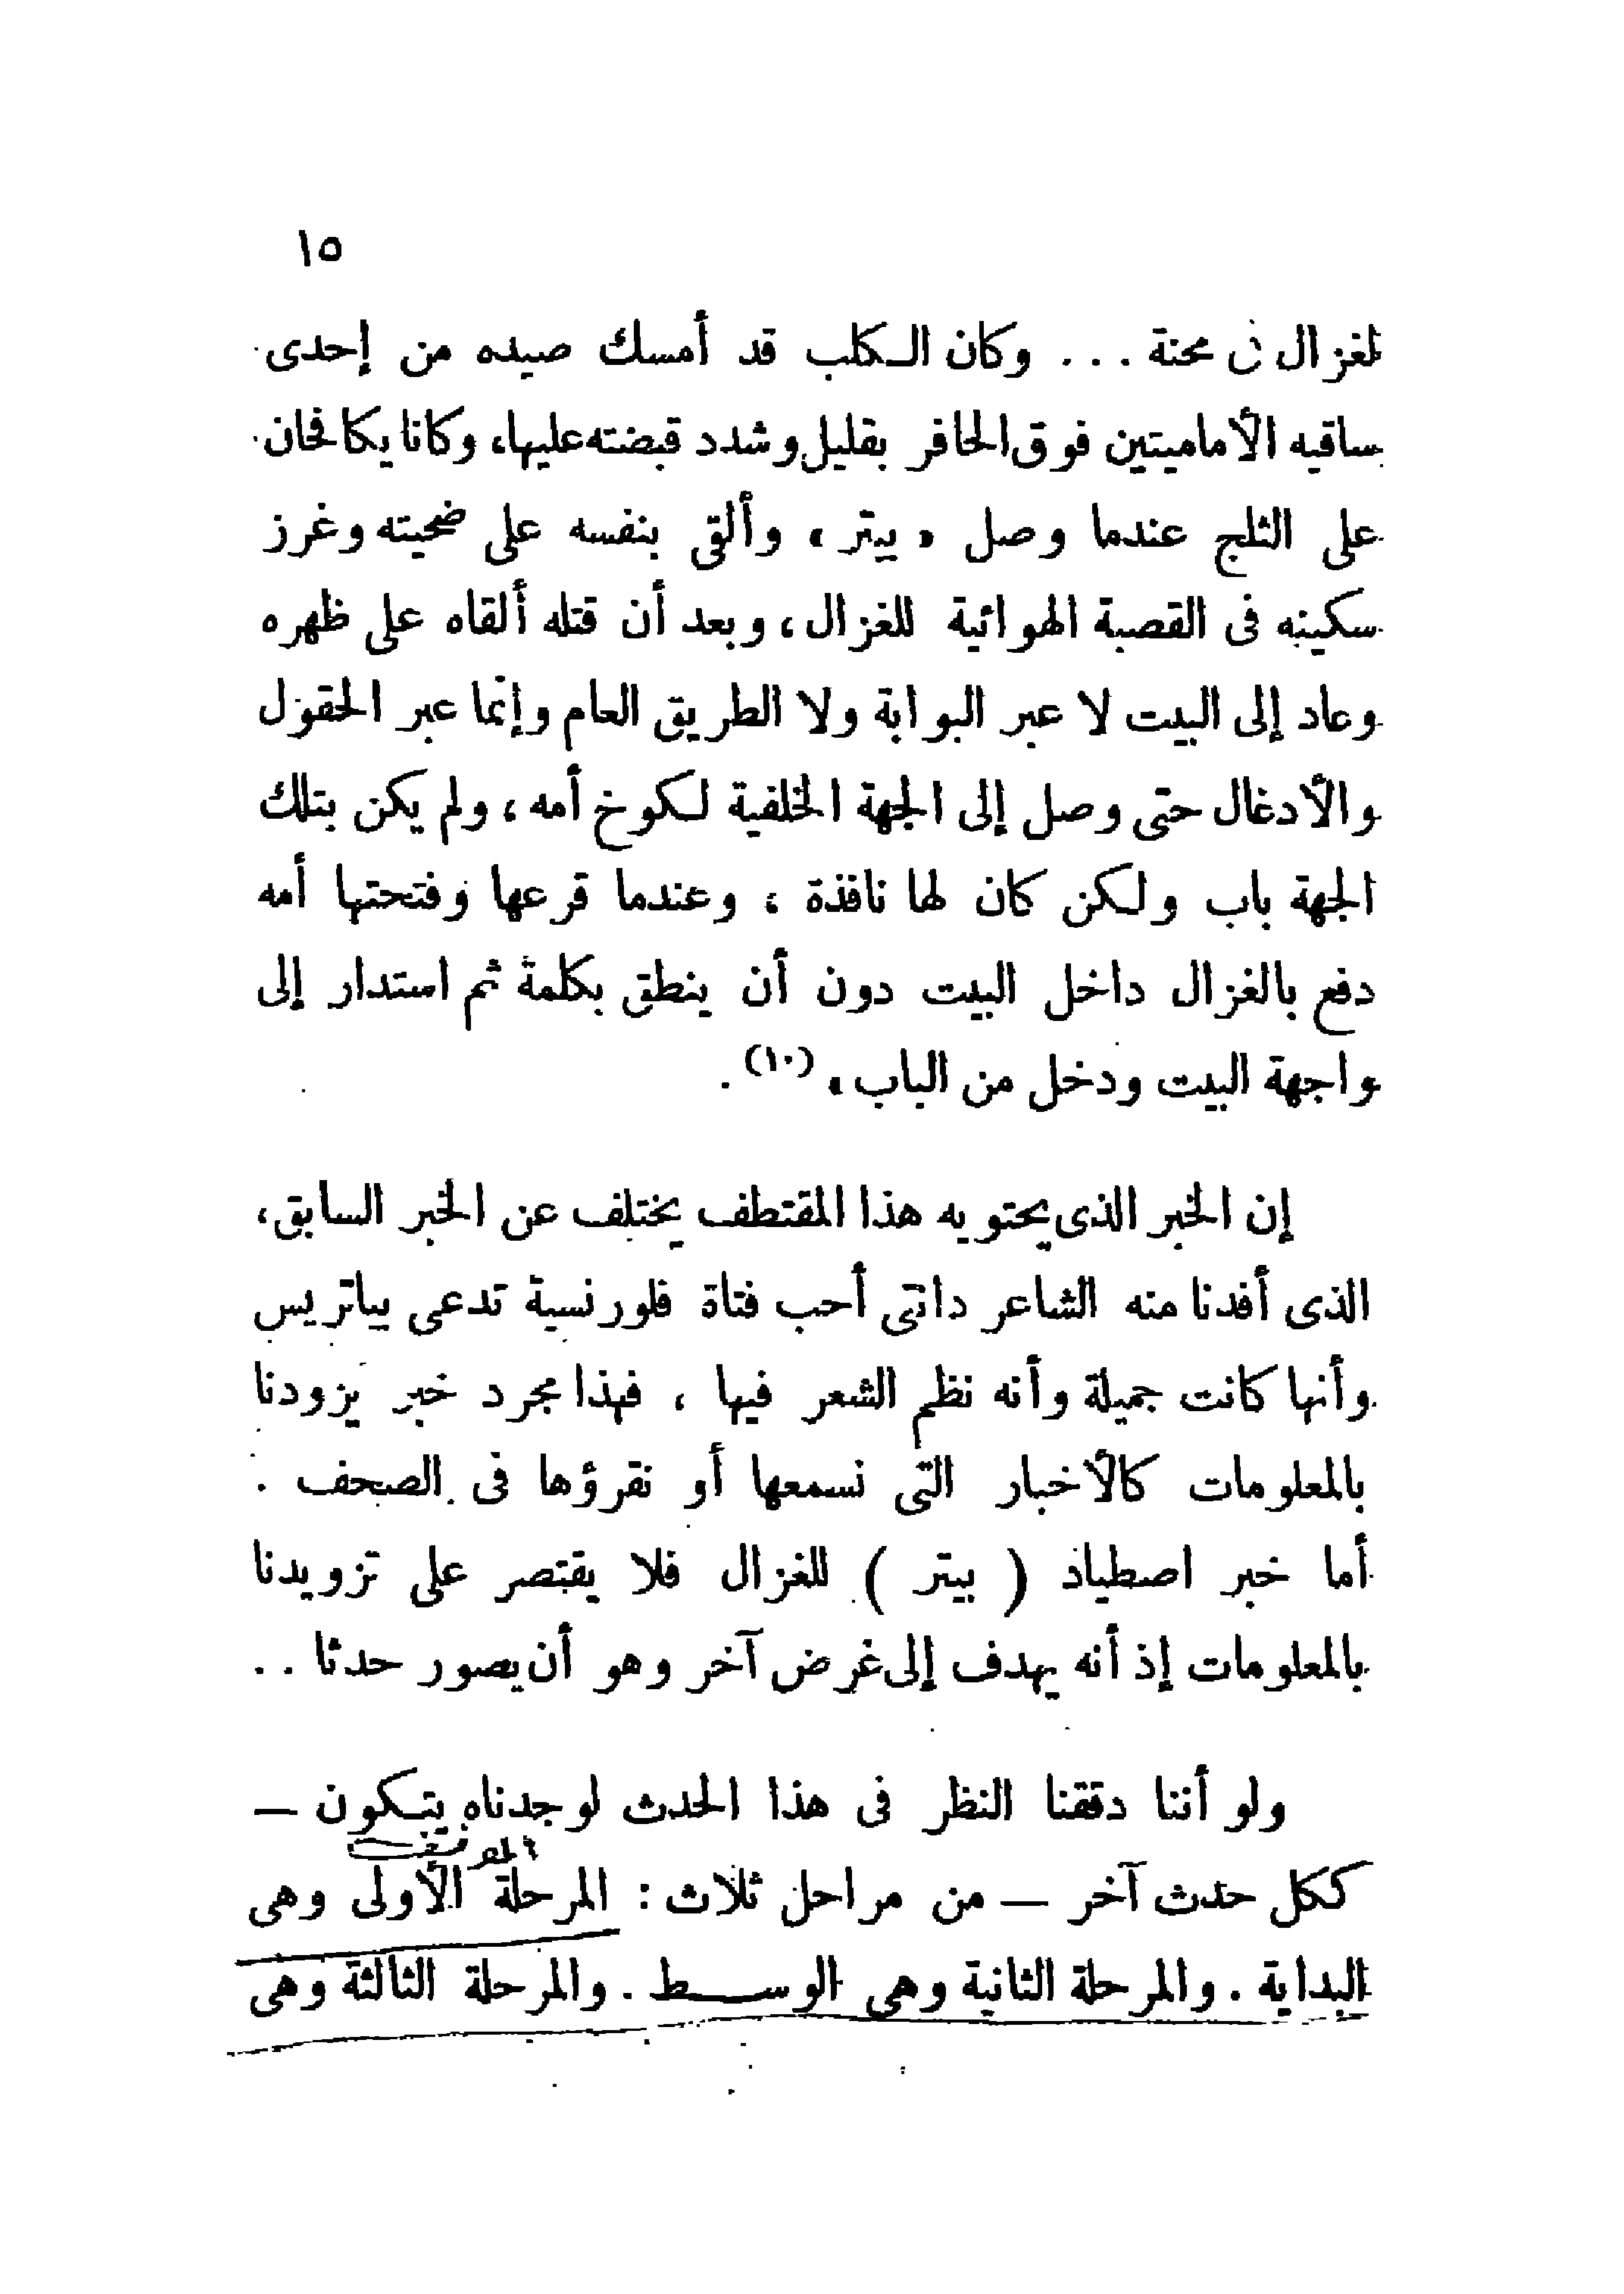 ١٥
لغزال فى محنة ... وكان الكلب قد أمسك صيده من إحدى
ساقيه الأماميتين فوق الحافر بقليل وشدد قبضته عليها، وكانا يكافحان
على الثلج عندما وصل « بيتر » وألقى بنفسه على ضحيته وغرز
سكينه فى القصبة الهوائية للغزال ، وبعد أن قتله ألقاه على ظهره
وعاد إلى البيت لا عبر البوابة ولا الطريق العام وإنما عبر الحقول
والأدغال حتى وصل إلى الجهة الخلفية لكوخ أمه ، ولم يكن بتلك
الجهة باب ولكن كان لها نافذة ، وعندما قرعها وفتحتها أمه
دفع بالغزال داخل البيت دون أن ينطق بكلمة ثم استدار إلى
واجهة البيت ودخل من الباب » (١٠) .
إن الخبر الذى يحتويه هذا المقتطف يختلف عن الخبر السابق ،
الذى أفدنا منه الشاعر دانتى أحب فتاة فلورنسية تدعى بياتريس
وأنها كانت جميلة وأنه نظم الشعر فيها ، فهذا مجرد خبر يزودنا
بالمعلومات كالأخبار التى نسمعها أو نقرؤها فى الصحف .
أما خبر اصطياد ( بيتر ) للغزال فلا يقتصر على تزويدنا
بالمعلومات إذ أنه يهدف إلى غرض آخر وهو أن يصور حدثا ..
ولو أننا دققنا النظر فى هذا الحدث لوجدناه يتكون —
الموقف
ككل حدث آخر — من مراحل ثلاث : المرحلة الأولى وهى
البداية . والمرحلة الثانية وهى الوسط . والمرحلة الثالثة وهى